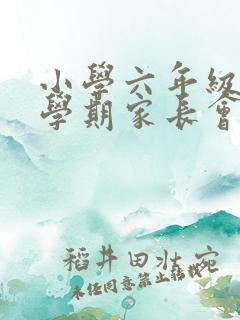 小學六年級
學期家長會
稻井田狀宛
未经同意禁止转载